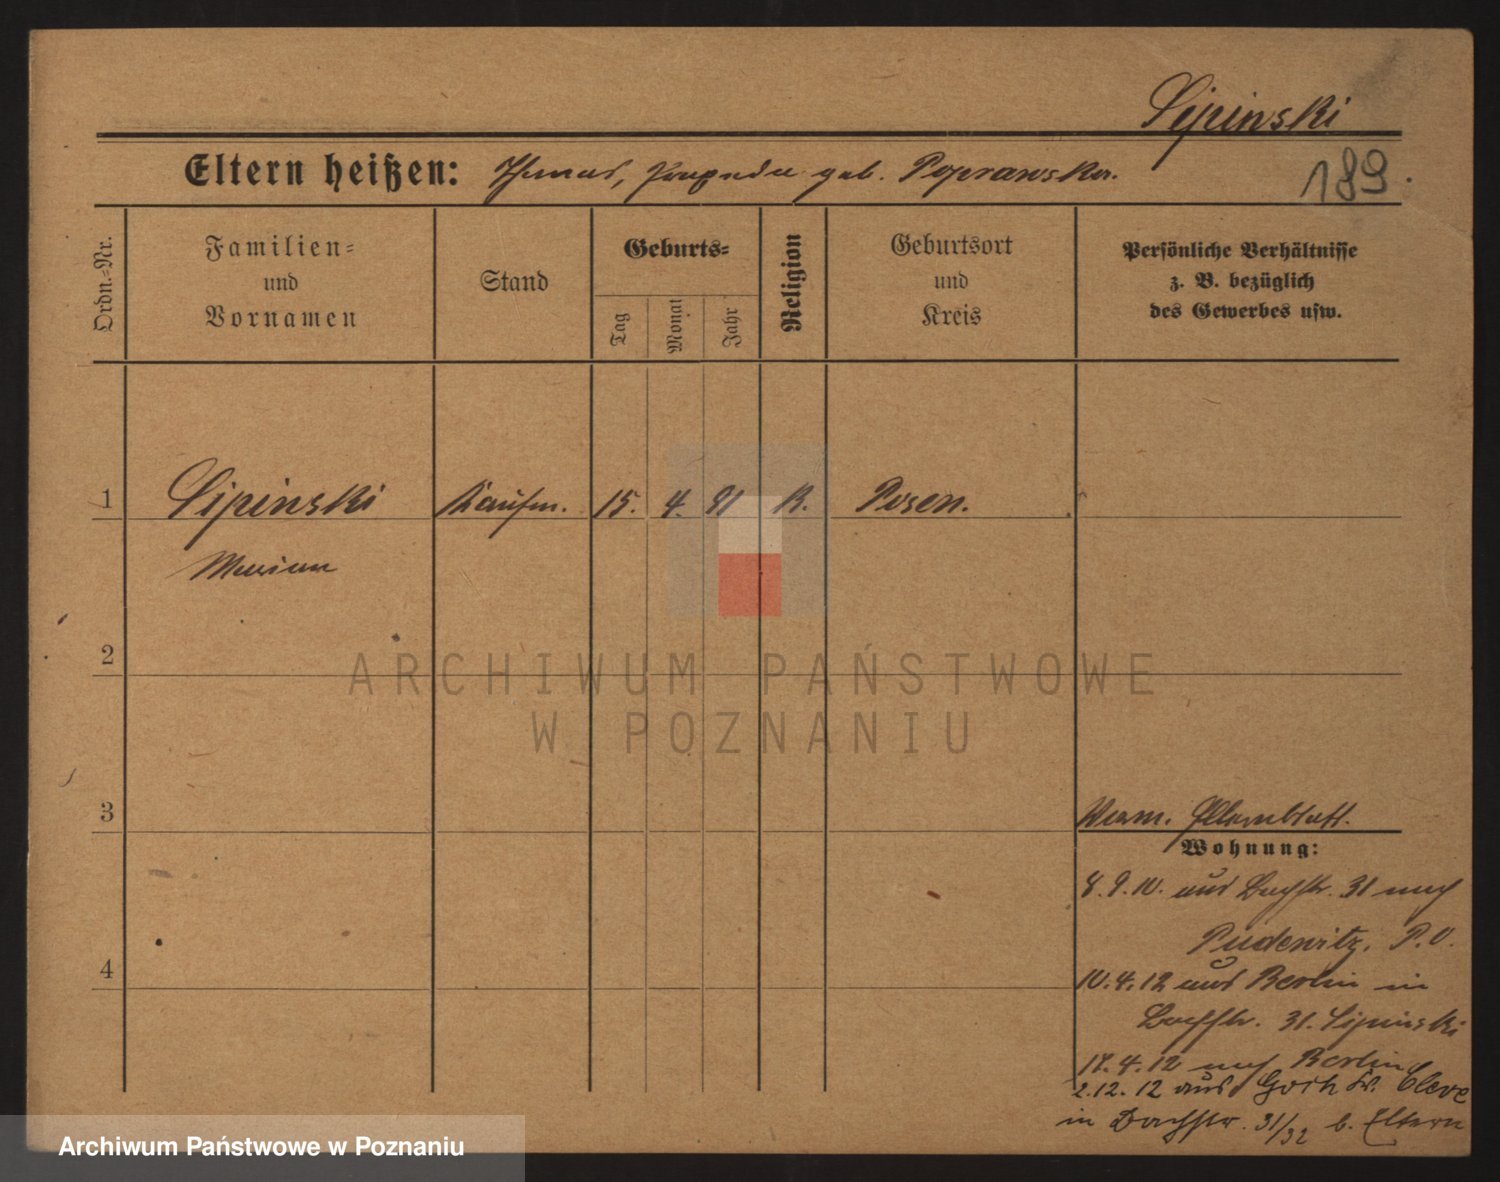 Lipinski
Eltern heißen: Thomas, geb. Poprawska.
189.
Ordn.=Nr.
Familien=
und
Vornamen
Stand
Geburts=
Tag
Monat
Jahr
Religion
Geburtsort
und
Kreis
Persönliche Verhältnisse
z. B. bezüglich
des Gewerbes usw.
1
Lipinski
Marian
Kaufm.
15.
4.
91
K.
Posen.
2
3
4
Elternblatt.
Wohnung:
8.9.10. aus Bachstr. 31 nach
Pudewitz. P.O.
10.4.12 aus Berlin in
Bachstr. 31. Lipinski
17.4.12 nach Berlin
2.12.12 aus Cleve
in Bachstr. 31/32 b. Eltern
ARCHIWUM PAŃSTWOWE
W POZNANIU
Archiwum Państwowe w Poznaniu